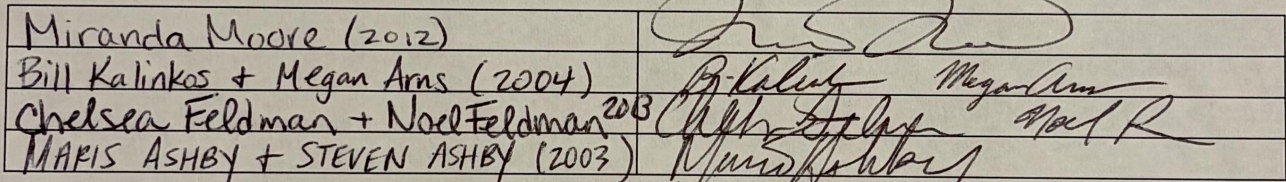 Miranda Moore (2012)
Bill Kalinkos + Megan Arns (2004) Megan Arns
Chelsea Feldman + Noel Feldman 2013 Noel R
MARIS ASHBY + STEVEN ASHBY (2003) Maris Ashby